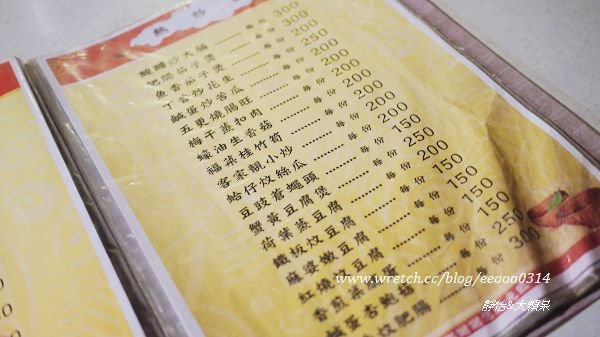 熱炒
酸醋炒大腸 每份 300
肥腸茄子煲 每份 300
魚香茄子煲 每份
丁香炒花生 每份
鹹蛋炒苦瓜 每份
五更燒腸旺 每份 250
梅干蒸扣肉 每份 200
蠔油生香菇 每份 200
福菜桂竹筍 每份 200
客家靚小炒 每份 200
蛤仔炆絲瓜 每份 200
豆豉蒼蠅頭 每份 150
蟹黃豆腐煲 每份 250
荷葉蒸豆腐 每份 200
鐵板炆豆腐 每份
麻婆嫩豆腐 每份 150
紅燒豆腐 每份 150
香煎 每份 150
鹹蛋杏鮑菇 每份 250
炆肥腸 每份 300
www.wretch.cc/blog/eeooa0314
靜怡&大顆呆